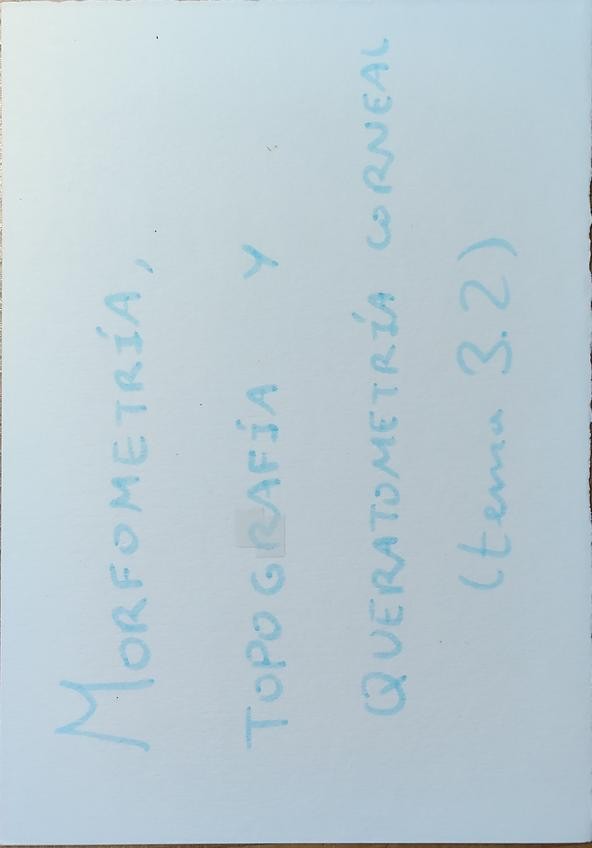 MORFOMETRÍA,
TOPOGRAFÍA Y
QUERATOMETRÍA CORNEAL
(tema 3.2)